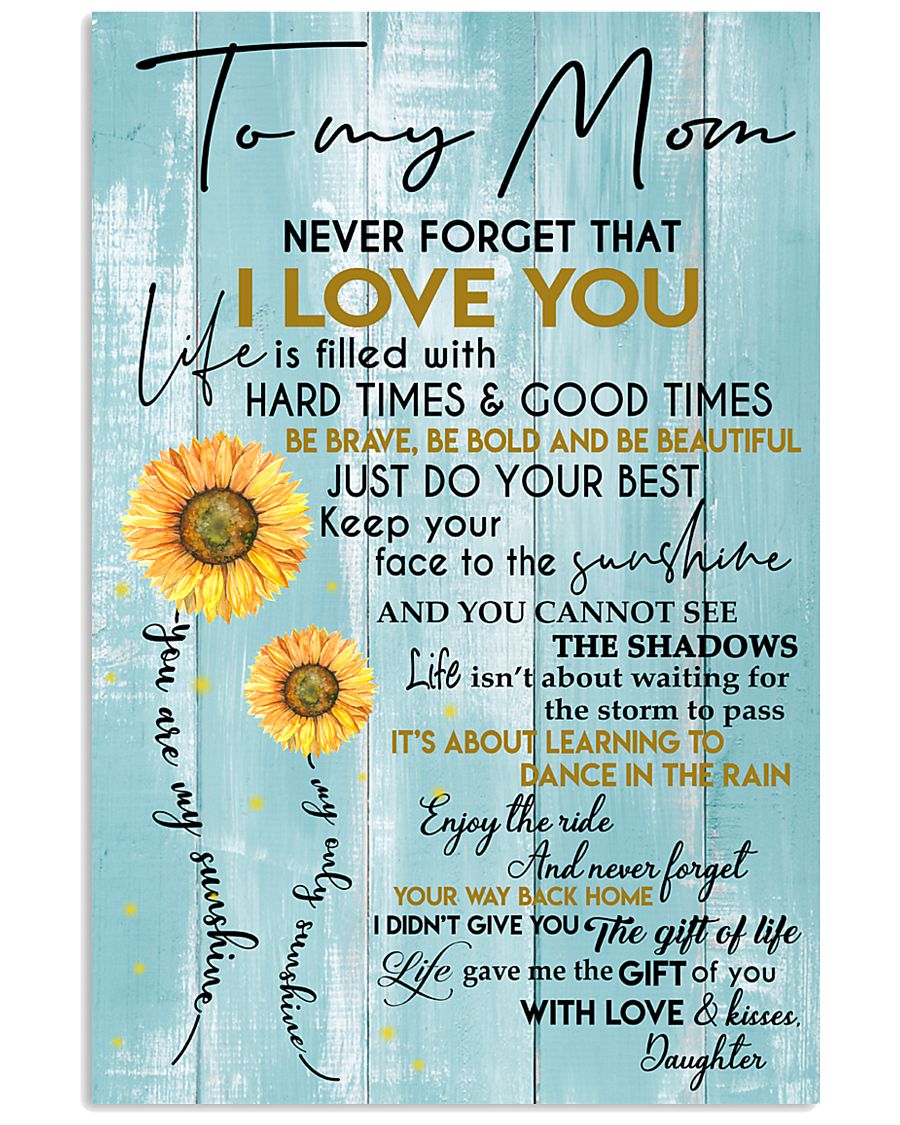 To my Mom
NEVER FORGET THAT
I LOVE YOU
Life is filled with
HARD TIMES & GOOD TIMES
BE BRAVE, BE BOLD AND BE BEAUTIFUL
JUST DO YOUR BEST
Keep your
face to the sunshine
AND YOU CANNOT SEE
THE SHADOWS
Life isn't about waiting for
the storm to pass
IT'S ABOUT LEARNING TO
DANCE IN THE RAIN
Enjoy the ride
And never forget
YOUR WAY BACK HOME
I DIDN'T GIVE YOU The gift of life
Life gave me the GIFT of you
WITH LOVE & kisses,
Daughter
you are my sunshine
my only sunshine